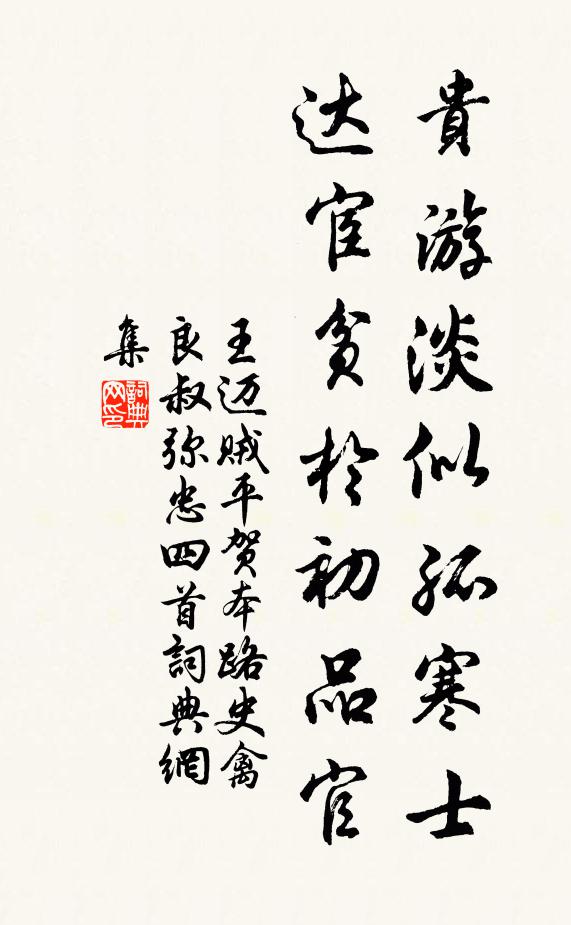 貴游淡似孤寒士
达宦貧於初品官
王迈贼平贺本路史禽
良叔弥忠四首詞典網
集
詞典
网印